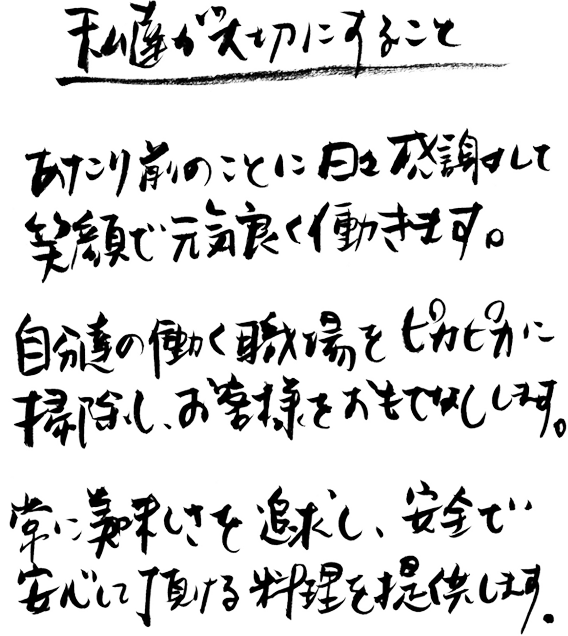 私達が大切にすること
あたり前のことに日々感謝して
笑顔で元気良く働きます。
自分達の働く職場をピカピカに
掃除し、お客様をおもてなしします。
常に美味しさを追求し、安全で
安心して頂ける料理を提供します。